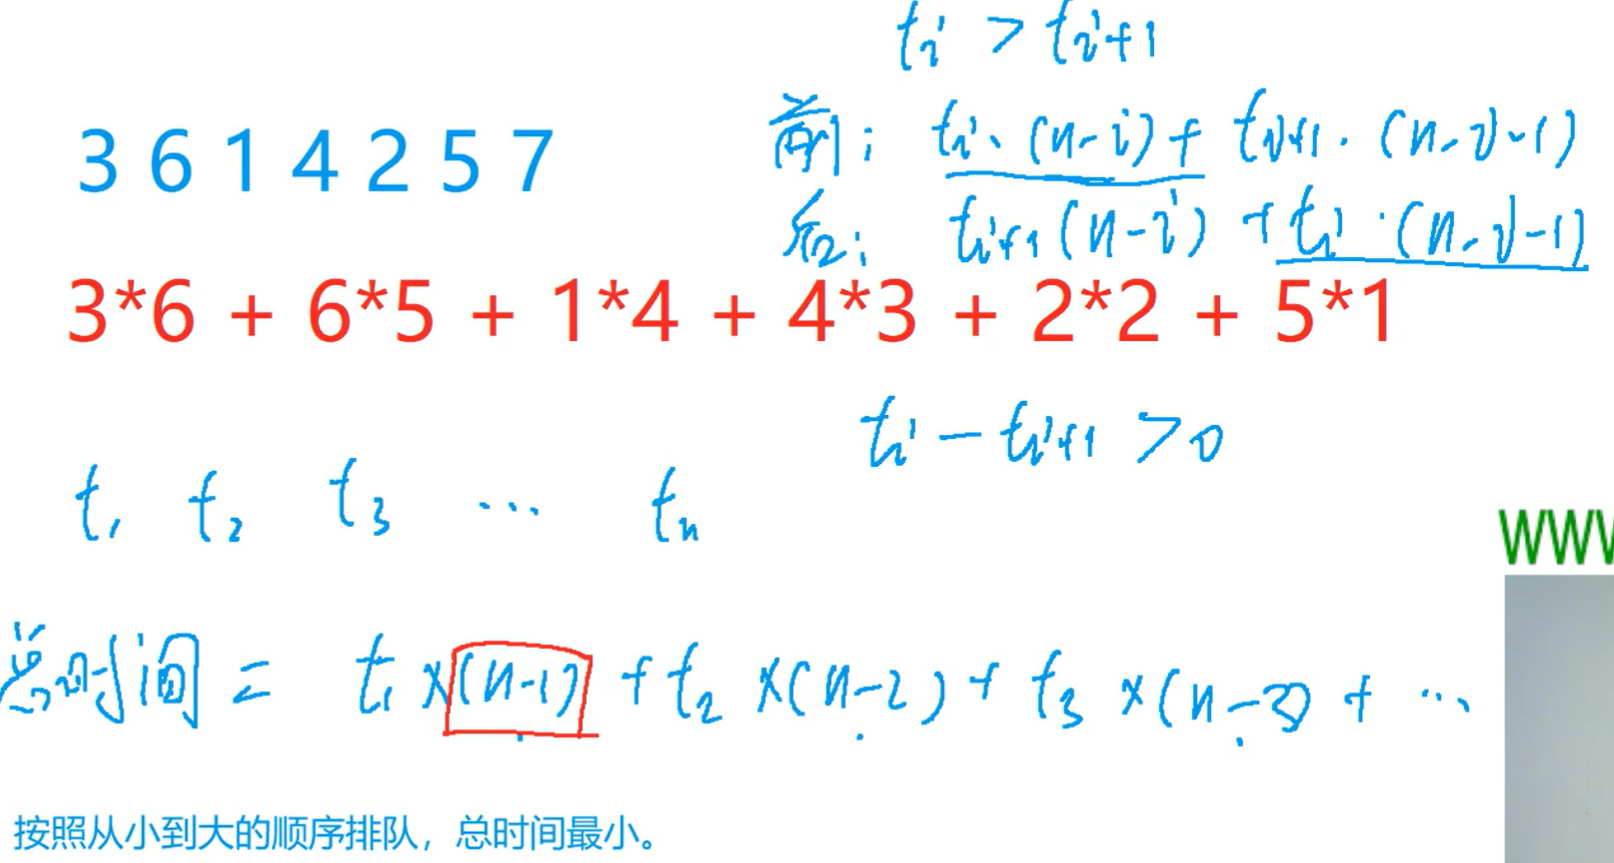 tᵢ > tᵢ₊₁
3 6 1 4 2 5 7
前: tᵢ·(n-i) + tᵢ₊₁·(n-i-1)
后: tᵢ₊₁(n-i) + tᵢ·(n-i-1)
3*6 + 6*5 + 1*4 + 4*3 + 2*2 + 5*1
tᵢ - tᵢ₊₁ > 0
t₁ t₂ t₃ … tₙ
WWW
总时间 = t₁×(n-1) + t₂×(n-2) + t₃×(n-3) + …
按照从小到大的顺序排队，总时间最小。